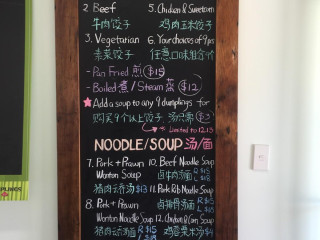 2. Beef 5. Chicken & Sweetcorn
牛肉饺子 鸡肉玉米饺子
3. Vegetarian 6. Your choices of 9 pcs
素菜饺子 任意口味组合9个
- Pan Fried 煎 $15
- Boiled 煮 / Steam 蒸 $12
Add a soup to any 9 dumplings for
购买9个以上饺子, 汤只需 $3
Limited to 12, 13
NOODLE/SOUP 汤/面
7. Pork + Prawn 10. Beef Noodle Soup
Wonton Soup 卤牛肉汤面 R $15
猪肉云吞汤 $13 11. Pork Rib Noodle Soup
8. Pork + Prawn 卤排骨汤面
Wonton Noodle Soup 12. Chicken & Corn Soup
猪肉云吞汤面 鸡蓉粟米汤 $4